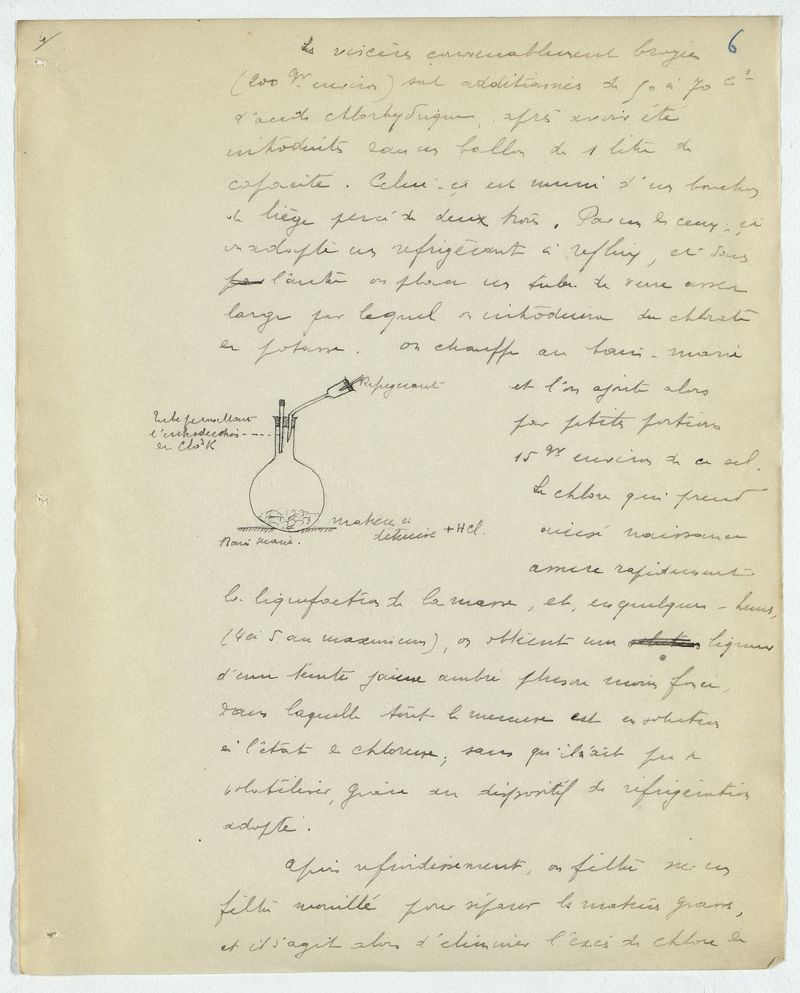 6
Les viscères convenablement broyés
(200 gr environ) sont additionnés de 50 à 70 c3
d'acide chlorhydrique, après avoir été
introduits dans un ballon de 1 litre de
capacité. Celui-ci est muni d'un bouchon
de liège percé de deux trous. Par un de ceux-ci
on adapte un réfrigérant à reflux, et dans
par l'autre on place un tube de verre assez
large par lequel on introduira du chlorate
de potasse. On chauffe au bain-marie
Réfrigérant
et l'on ajoute alors
Tube permettant
l'introduction
de ClO3K
par petites portions
15 gr environ de ce sel.
Le chlore qui prend
matière à
détruire + HCl.
Bain marie.
ainsi naissance
amène rapidement
la liquéfaction de la masse, et, en quelques heures,
(4 à 5 au maximum), on obtient une solution liqueur
d'une teinte jaune ambré plus ou moins foncé,
dans laquelle tout le mercure est en solution
à l'état de chlorure, sans qu'il ait pu se
volatiliser, grâce au dispositif de réfrigération
adopté.
Après refroidissement, on filtre sur un
filtre mouillé pour séparer les matières grasses,
et il s'agit alors d'éliminer l'excès de chlore en